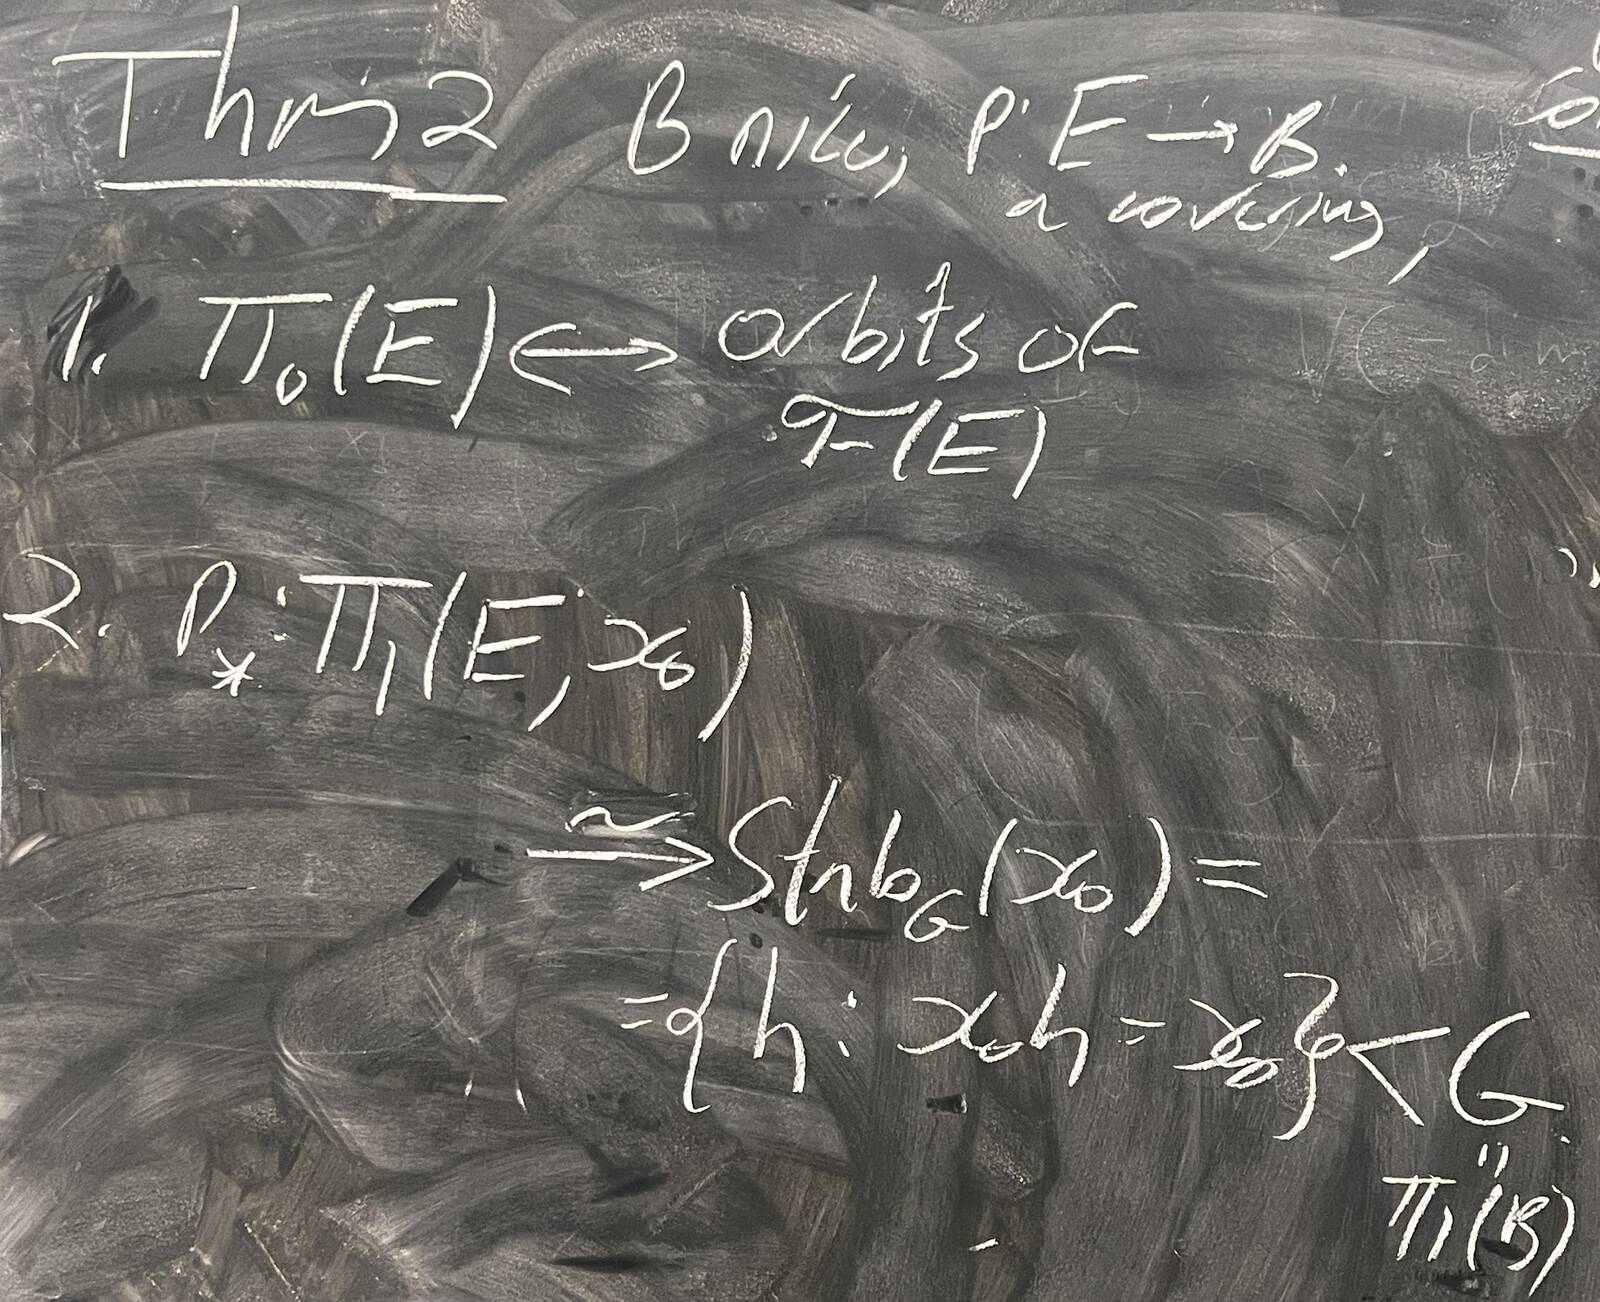 Thm 2 B nice, p: E → B.
a covering,
1. π₀(E) ↔ orbits of
F(E)
2. p_*: π₁(E, x₀)
≃→ Stab_G(x₀) =
= {h : x₀h = x₀} < G
"
π₁(B)